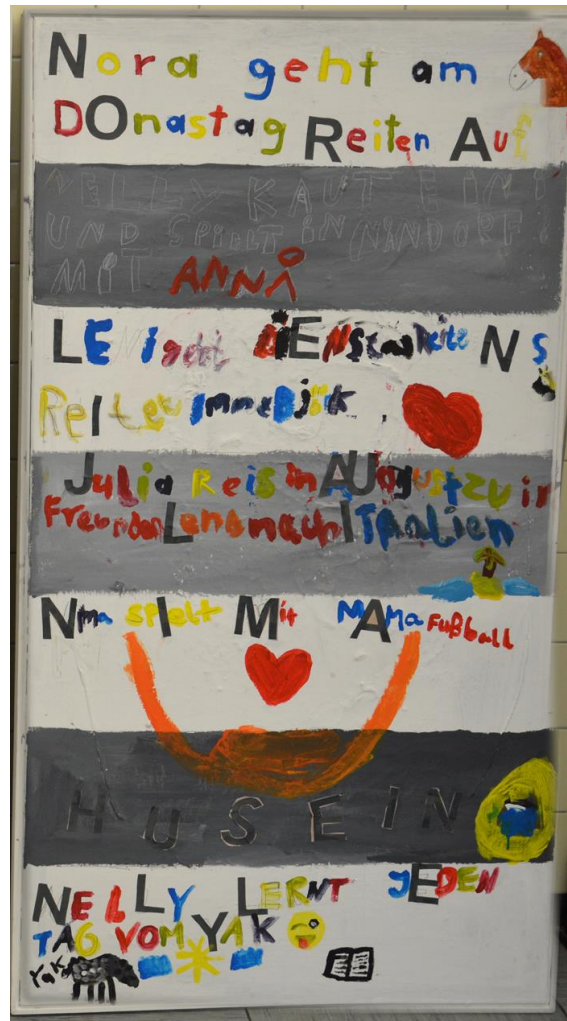 Nora geht am
DOnastag Reiten Auf
NELLY KAUT EIN!
UND SPIELT IN NINDORF!
MIT ANNA
LENI geht DiENStag Reite N S
Reiter ImmeBjörk.
Julia Reis in AUgust zu ir
Freundin Lena nach ITAlien
Nina spIelt Mit MAMa Fußball
HUSEIN
NELLY LERNT JEDEN
TAG VOM YAK
Yak